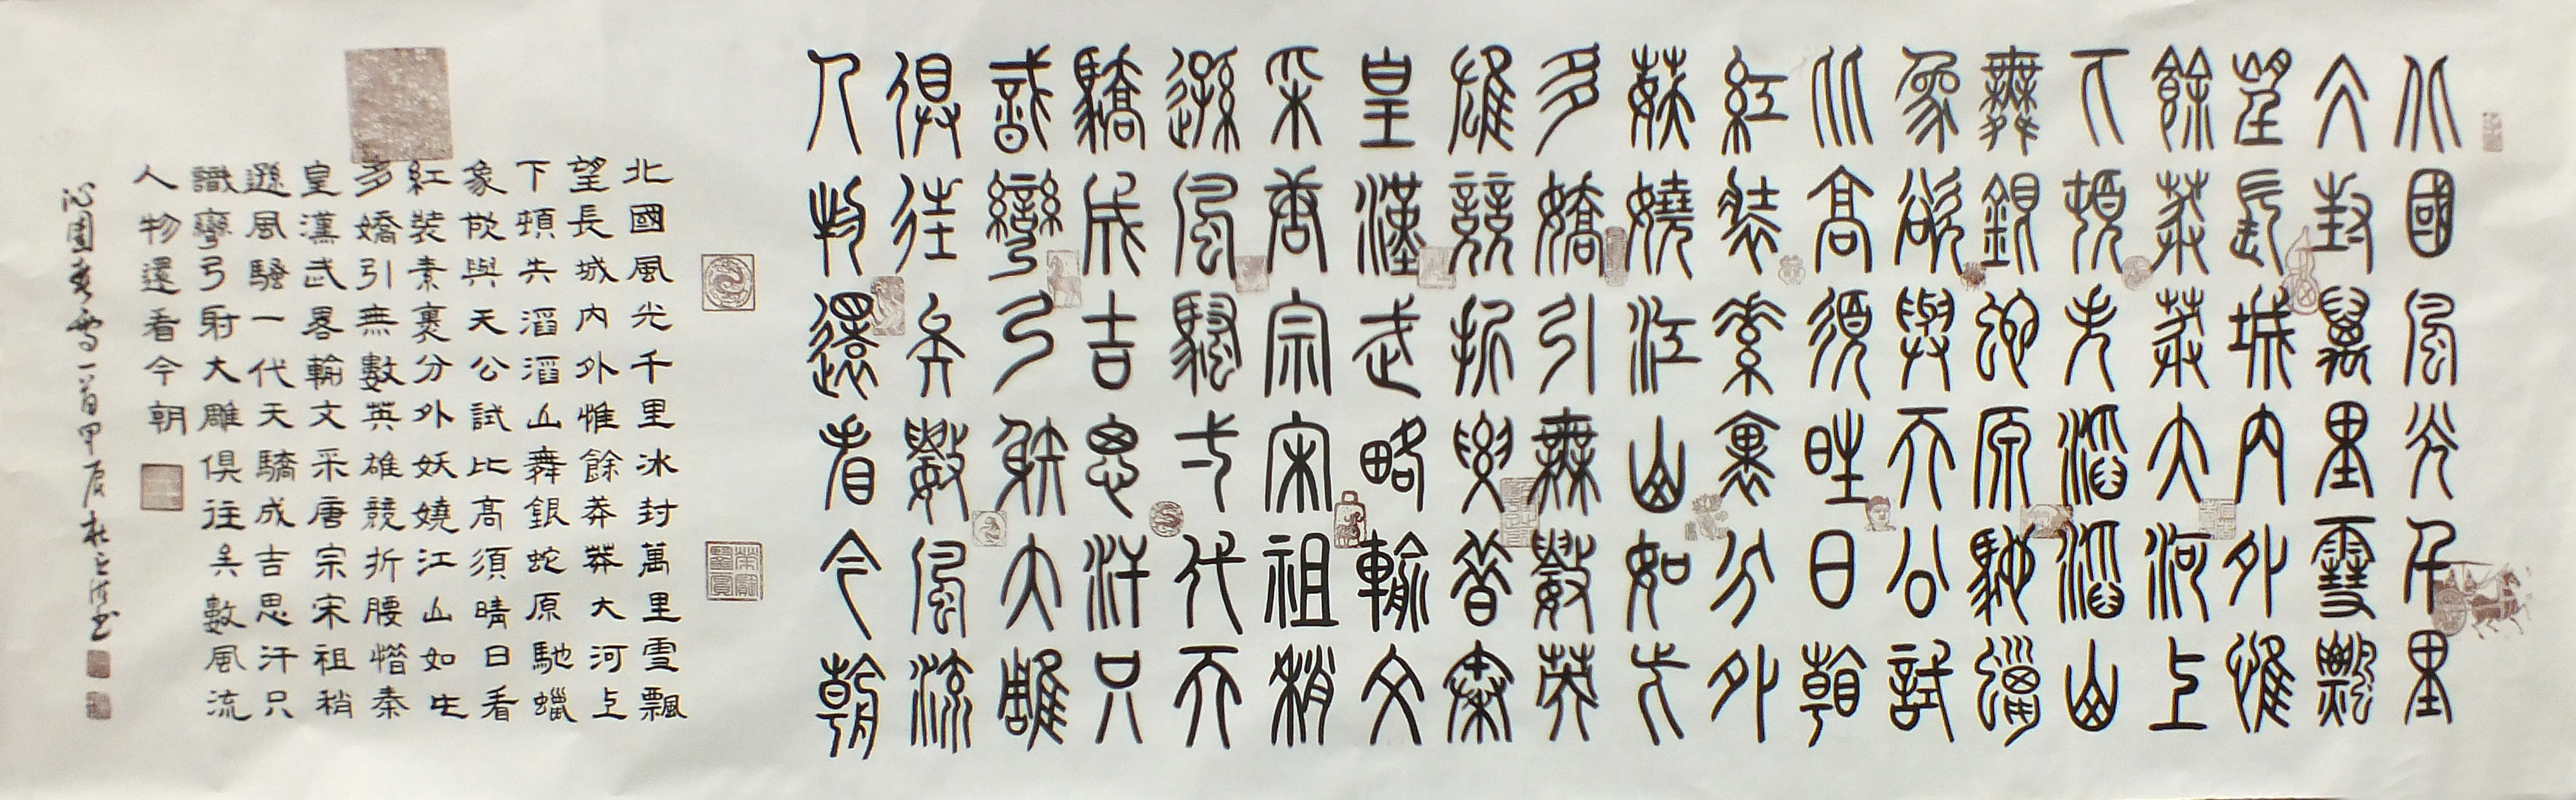 北國風光千里
冰封萬里雪飄
望長城內外惟
餘莽莽大河上
下頓失滔滔山
舞銀蛇原馳蠟
象欲與天公試
比高須晴日看
紅裝素裹分外
妖嬈江山如此
多嬌引無數英
雄競折腰惜秦
皇漢武略輸文
采唐宗宋祖稍
遜風騷一代天
驕成吉思汗只
識彎弓射大雕
俱往矣數風流
人物還看今朝
北國風光千里冰封萬里雪飄
望長城內外惟餘莽莽大河上
下頓失滔滔山舞銀蛇原馳蠟
象欲與天公試比高須晴日看
紅裝素裹分外妖嬈江山如此
多嬌引無數英雄競折腰惜秦
皇漢武畧輸文采唐宗宋祖稍
遜風騷一代天驕成吉思汗只
識彎弓射大雕俱往矣數風流
人物還看今朝
沁園春雪一首甲辰杜書